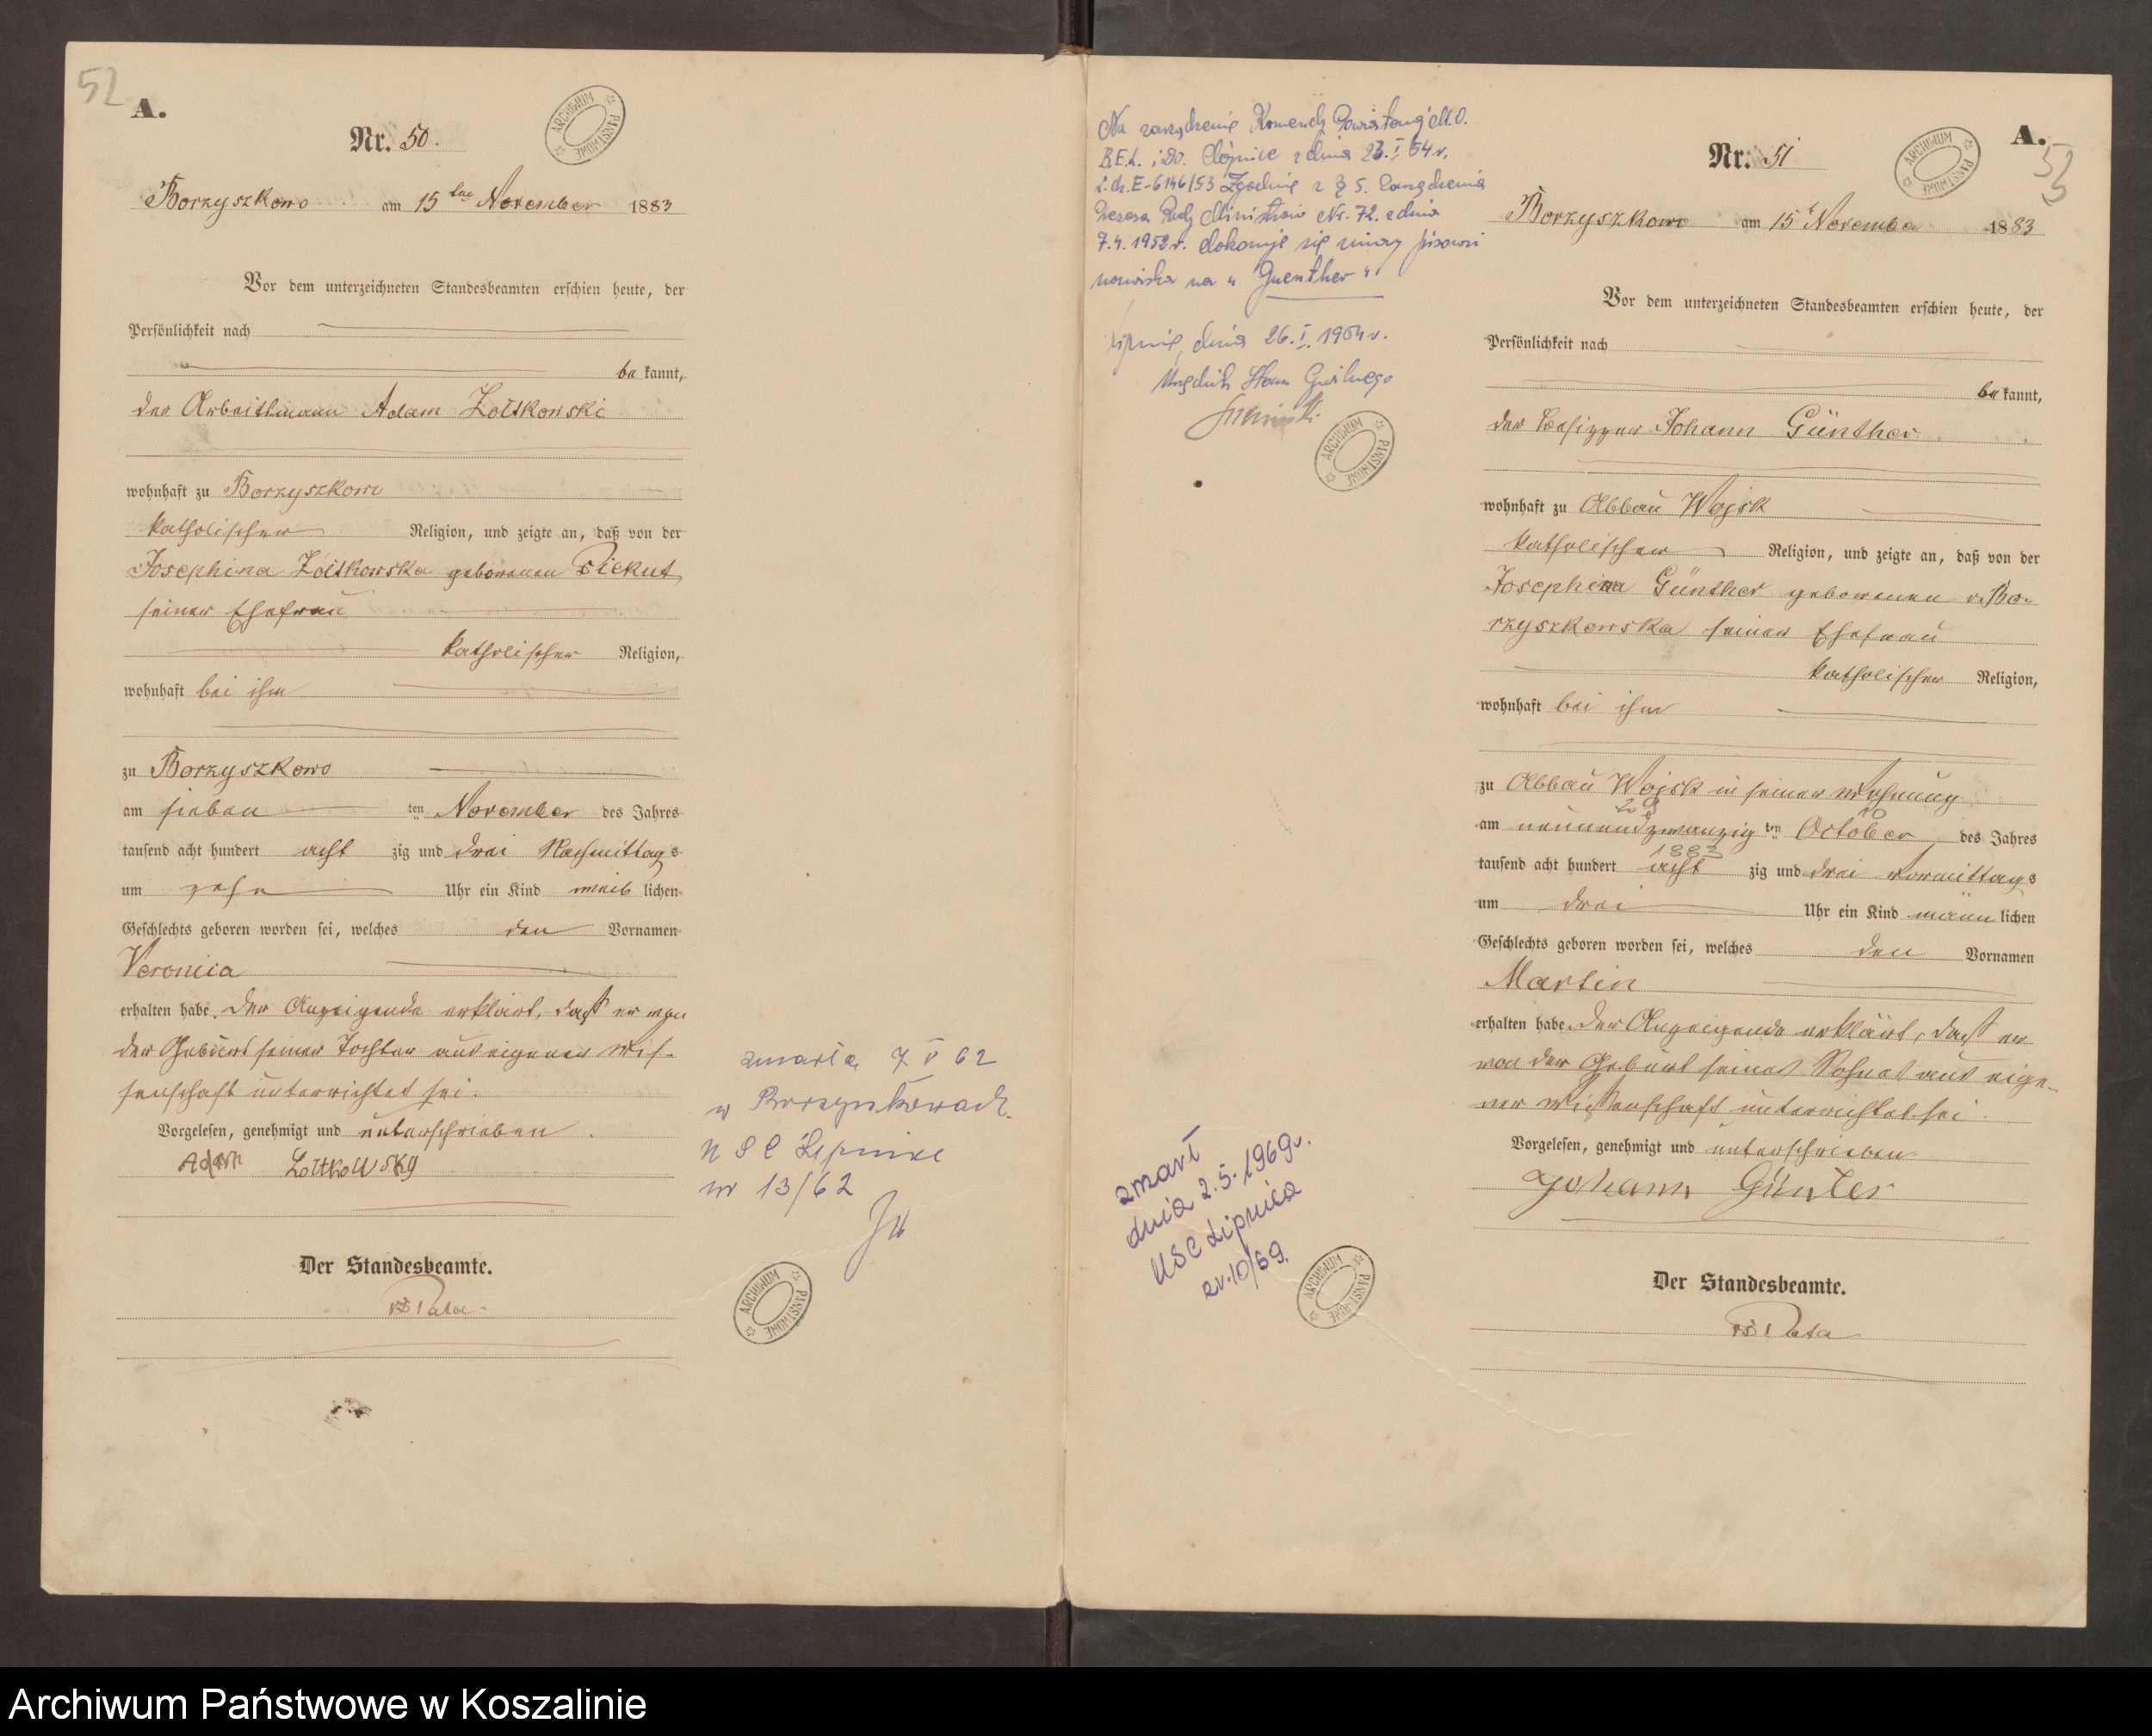 52
A.
Nr. 50.
ARCHIWUM PAŃSTWOWE
Borzyszkowo am 15ten November 1883
Vor dem unterzeichneten Standesbeamten erschien heute, der
Persönlichkeit nach
be kannt,
der Arbeitsmann Adam Zoltkowski
wohnhaft zu Borzyszkowo
katholischer Religion, und zeigte an, daß von der
Josephina Zoltkowska geborenen Piekut,
seiner Ehefrau
katholischer Religion,
wohnhaft bei ihm
zu Borzyszkowo
am sieben ten November des Jahres
tausend acht hundert acht zig und drei Nachmittags
um zehn Uhr ein Kind weib lichen
Geschlechts geboren worden sei, welches den Vornamen
Veronica
erhalten habe. Der Anzeigende erklärt, daß er von
der Geburt seiner Tochter aus eigener Wis-
senschaft unterrichtet sei.
Vorgelesen, genehmigt und unterschrieben.
Adam
Der Standesbeamte.
zmarła 7 V 62
w Borzyszkowach
U S C Lipnica
nr 13/62
ARCHIWUM PAŃSTWOWE
Na zarządzenie Komendy Powiatowej M.O.
B.E.L. i DO. Chojnice z dnia 23.I.54 r.
L.dz.E-6146/53 Zgodnie z § 5. Zarządzenia
Prezesa Rady Ministrów Nr. 72. z dnia
7.4.1952 r. dokonuje się zmiany pisowni
nazwiska na „Guenther"
Lipnica, dnia 26.I.1954 r.
Urzędnik Stanu Cywilnego
ARCHIWUM PAŃSTWOWE
A.
53
Nr. 51
ARCHIWUM PAŃSTWOWE
Borzyszkowo am 15t November 1883
Vor dem unterzeichneten Standesbeamten erschien heute, der
Persönlichkeit nach
be kannt,
der Besitzer Johann Günther
wohnhaft zu Abbau Wojsk
katholischer Religion, und zeigte an, daß von der
Josephina Günther geborenen v. Bo-
rzyszkowska seiner Ehefrau
katholischer Religion,
wohnhaft bei ihm
zu Abbau Wojsk in seiner Wohnung
29 10
am neunundzwanzig ten October des Jahres
1883
tausend acht hundert acht zig und drei Vormittags
um drei Uhr ein Kind männ lichen
Geschlechts geboren worden sei, welches den Vornamen
Martin
erhalten habe. Der Anzeigende erklärt, daß er
von der Geburt seines Sohnes aus eige-
ner Wissenschaft unterrichtet sei.
Vorgelesen, genehmigt und unterschrieben
Johann Günter
Der Standesbeamte.
zmarł
dnia 2.5.1969 r.
USC Lipnica
nr. 10/69.
ARCHIWUM PAŃSTWOWE
Archiwum Państwowe w Koszalinie